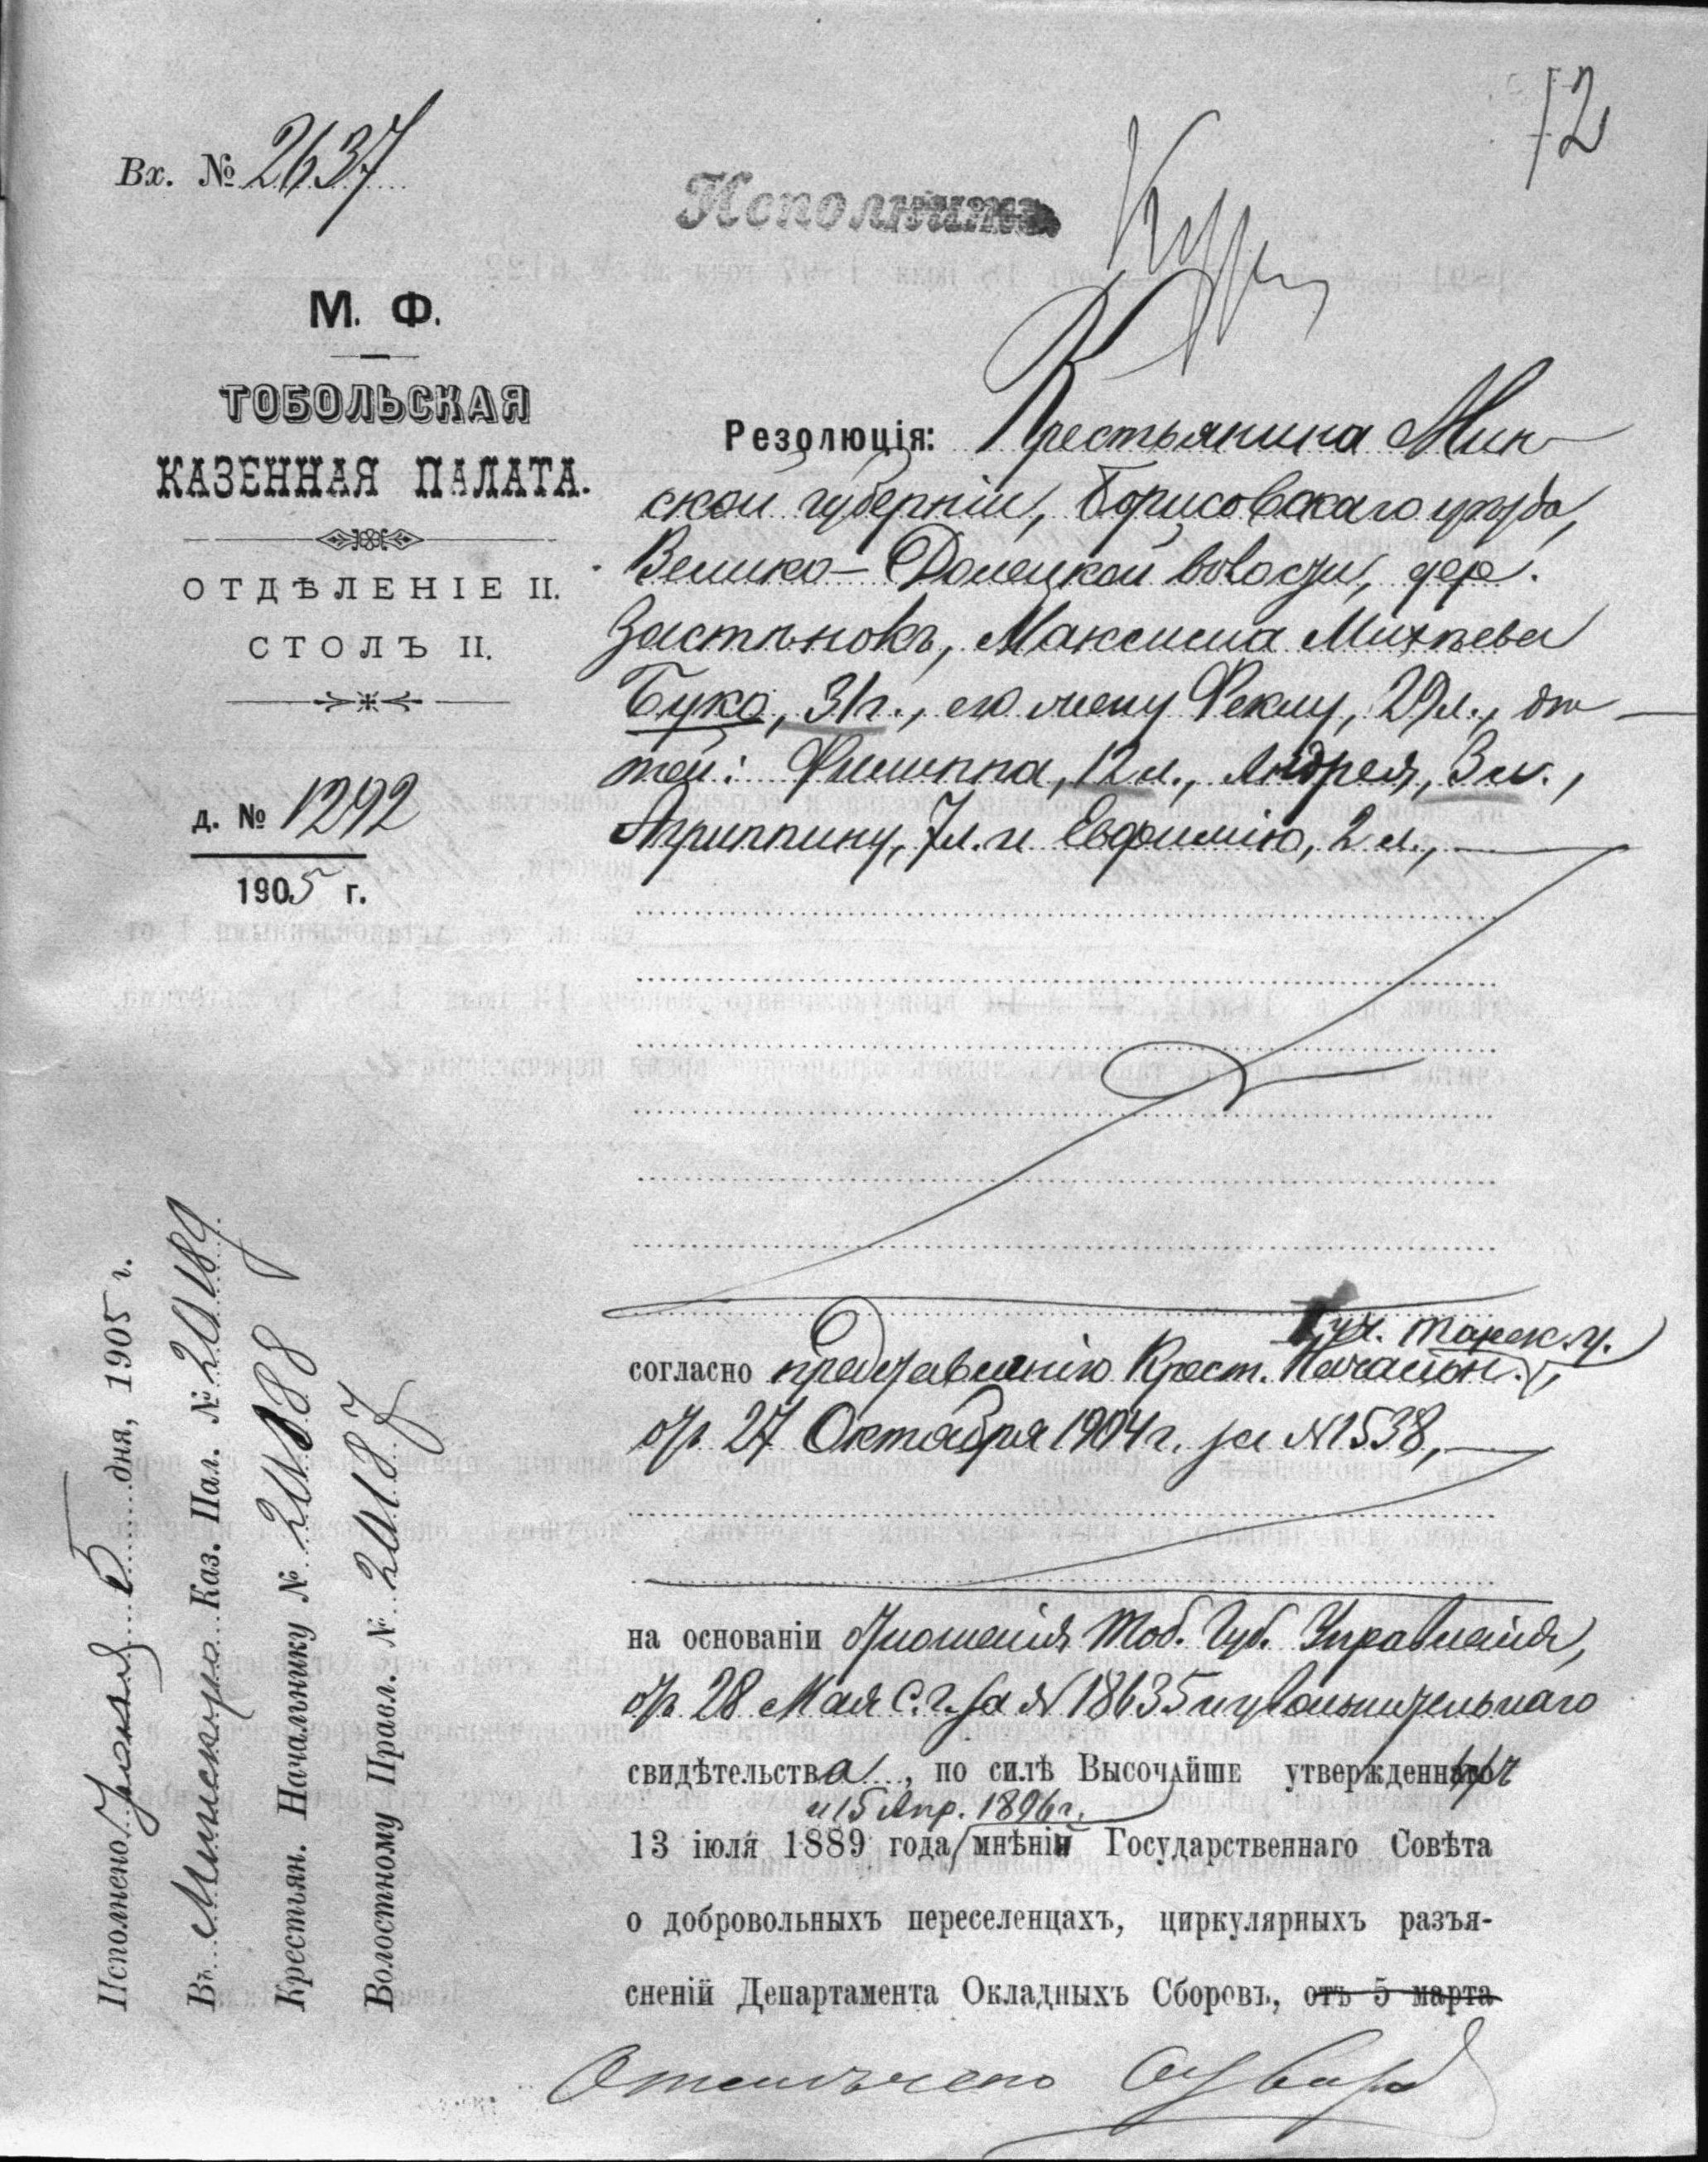 72
Вх. № 2637
Исполнить
М. Ф.
ТОБОЛЬСКАЯ
КАЗЕННАЯ ПАЛАТА.
ОТДѢЛЕНІЕ II.
СТОЛЪ II.
д. № 1292
1905 г.
Резолюція: Крестьянина Мин-
ской губерніи, Борисовскаго уѣзда,
Велико-Долецкой волости, дер.
Застѣнокъ, Максима Михѣева
Буко, 31 г., его жену Феклу, 29 л., дѣ-
тей: Филиппа, 12 л., Андрея, 3 л.,
Агриппину, 7 л. и Евфимію, 2 л.,
уч. Тарск. у.
согласно представленію Крест. Начальн.
отъ 27 Октября 1904 г. за № 1538,
на основаніи отношенія Тоб. Губ. Управленія,
отъ 28 Мая с. г. за № 18635 и увольнительнаго
свидѣтельства, по силѣ Высочайше утвержденныхъ
и 15 Апр. 1896 г.
13 іюля 1889 года мнѣній Государственнаго Совѣта
о добровольныхъ переселенцахъ, циркулярныхъ разъя-
сненій Департамента Окладныхъ Сборовъ, отъ 5 марта
Отмѣчено
Исполнено Іюня 5 дня, 1905 г.
Въ Минскую Каз. Пал. № 20189
Крестьян. Начальнику № 20188
Волостному Правл. № 20187